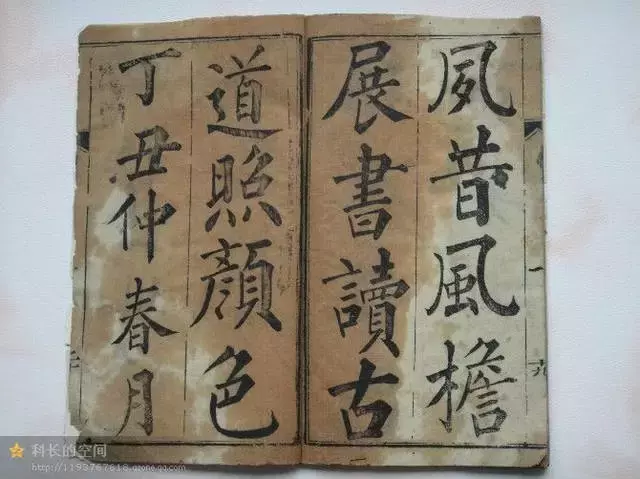 夙昔風檐
展書讀古
道照顔色
丁丑仲春月
十九
科长的空间
http://1193767618.qzone.qq.com